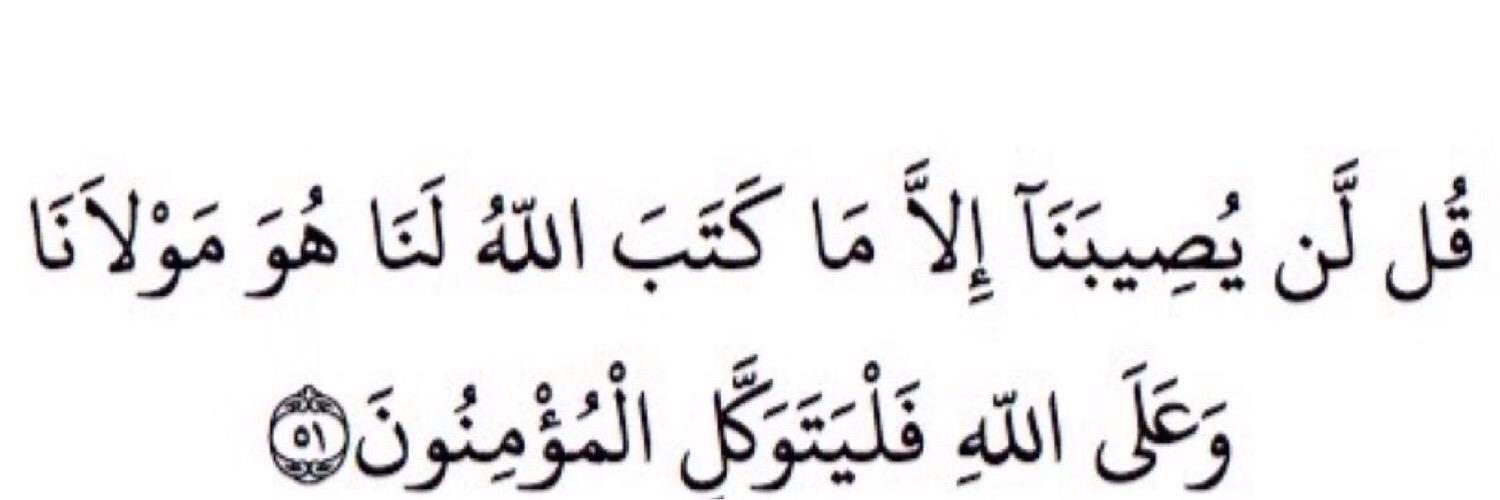 قُل لَّن يُصِيبَنَآ إِلاَّ مَا كَتَبَ اللّهُ لَنَا هُوَ مَوْلاَنَا
وَعَلَى اللّهِ فَلْيَتَوَكَّلِ الْمُؤْمِنُونَ ﴿٥١﴾